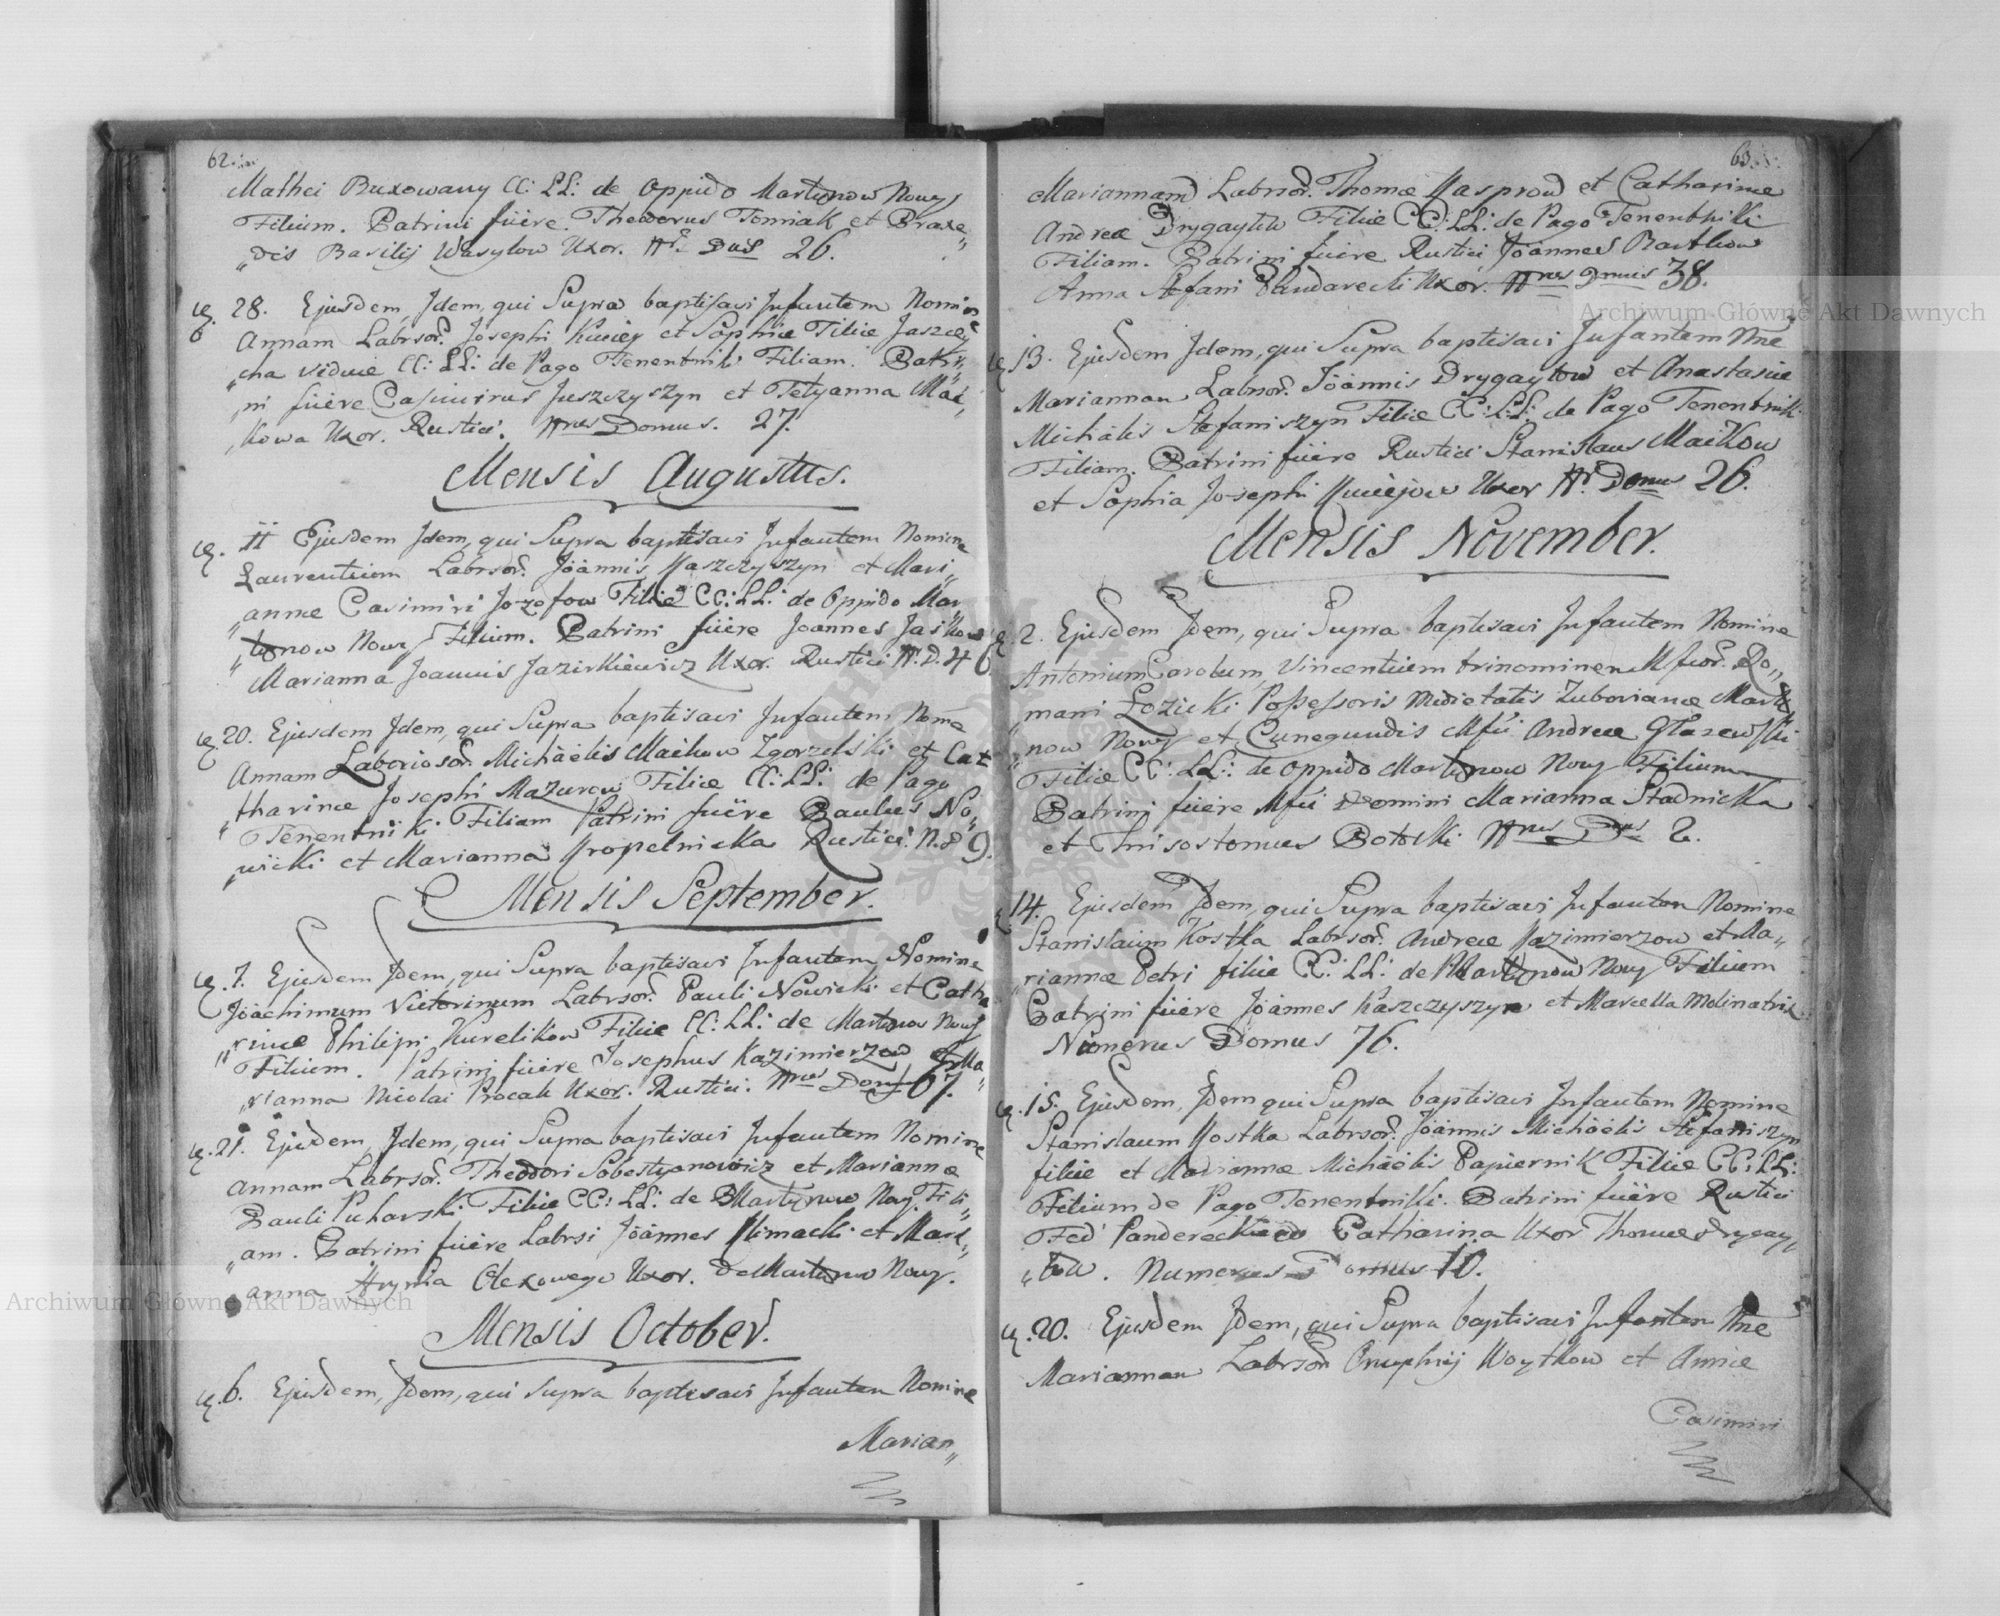 62.
Mathei Buxowany CC: LL: de Oppido Martynow Nowy
Filium. Patrini fuere Theodorus Tomiak et Praxe„
„dis Basilij Wasylow Uxor. Nr. Dus 26.
28. Ejusdem, Idem, qui Supra baptisavi Infantem Nomine
Annam Labrsor. Josephi Kuciey et Sophiæ Filiæ Jaszcze
„cha viduæ CC: LL: de Pago Tenentniki Filiam. Patri„
„ni fuere Casimirus Juszczyszyn et Tetyanna Mać„
„kowa Uxor. Rustici. Nrus Domus. 27.
Mensis Augustus.
11 Ejusdem Idem, qui Supra baptisavi Infantem Nomine
Laurentium Labrsor. Joannis Kaszczyszyn et Mari„
„annæ Casimiri Jozefow Filiæ CC: LL: de Oppido Mar„
„tynow Nowy Filium. Patrini fuere Joannes Jaśkow
Marianna Joannis Jazirkiewicz Uxor. Rustici N. D. 46
20. Ejusdem Idem, qui Supra baptisavi Infantem Nome
Annam Laboriosor. Michaelis Maćkow Zgorzelski et Cat
„tharinæ Josephi Mazurow Filiæ CC: LL: de Pago
Tenentniki Filiam Patrini fuere Paulus No„
„wicki et Marianna Kropelnicka Rustici. N. 89.
Mensis September.
7. Ejusdem Idem, qui Supra baptisavi Infantem Nomine
Joachimum Victorinum Labrsor. Pauli Nowicki et Catha
„rinæ Philipi Kurelikow Filiæ CC: LL: de Martynow Nowy
Filium. Patrini fuere Josephus Kazimierzow et Ma„
„rianna Nicolai Procak Uxor. Rustici. Nrus Domus 67.
21. Ejusdem, Idem, qui Supra baptisavi Infantem Nomine
Annam Labrsor. Theodori Sobestyanowicz et Mariannæ
Pauli Puharski Filiæ CC: LL: de Martynow Nowy Fili„
„am. Patrini fuere Labrsi Joannes Klimacki et Mari„
„anna Hrynia Olexowego Uxor. de Martynow Nowy.
Mensis October.
6. Ejusdem, Idem, qui Supra baptisavi Infantem Nomine
Marian„
63.
Mariannam Labrsor. Thomæ Kasprow et Catharinæ
Andreæ Drygaytow Filiæ CC: LL: de Pago Tenentniki
Filiam. Patrini fuere Rustici Joannes Bartkow
Anna Stefani Pandarecki Uxor. Nrus Dmus 38.
13. Ejusdem Idem, qui Supra baptisavi Infantem Nne
Mariannam Labrsor. Joannis Drygaytow et Anastasiæ
Michaelis Stefaniszyn Filiæ CC: LL: de Pago Tenentniki
Filiam. Patrini fuere Rustici Stanislaus Maćkow
et Sophia Josephi Kuciejow Uxor Nr. Domus 26.
Mensis November.
2. Ejusdem Idem, qui Supra baptisavi Infantem Nomine
Antonium Carolum, Vincentium trinominem Mfcor. Ro„
„mani Lozicki Possessoris Medietatis Zuborianæ Marty
„now Nowy et Cunegundis Mfci Andreæ Głazewski
Filiæ CC: LL: de Oppido Martynow Nowy Filium
Patrini fuere Mfci Domini Marianna Stadnicka
et Chrisostomus Potocki Nrus Dus 2.
14. Ejusdem Idem, qui Supra baptisavi Infantem Nomine
Stanislaum Kostka Labrsor. Andreæ Kazimierzow et Ma„
„riannæ Petri filiæ CC: LL: de Martynow Nowy Filium
Patrini fuere Joannes Kaszczyszyn et Marcella Molinatrix
Numerus Domus 76.
15. Ejusdem, Idem qui Supra baptisavi Infantem Nomine
Stanislaum Kostka Labrsor. Joannis Michaelis Stefaniszyn
filii et Mariannæ Michaelis Papiernik Filiæ CC: LL:
Filium de Pago Tenentniki. Patrini fuere Rustici
Fed Panderecki et Catharina Uxor Thomæ Drygay„
„tow. Numerus Domus 10.
20. Ejusdem Idem, qui Supra baptisavi Infantem Nne
Mariannam Labrsor Onuphrij Woytkow et Annæ
Casimiri
Archiwum Główne Akt Dawnych
Archiwum Główne Akt Dawnych